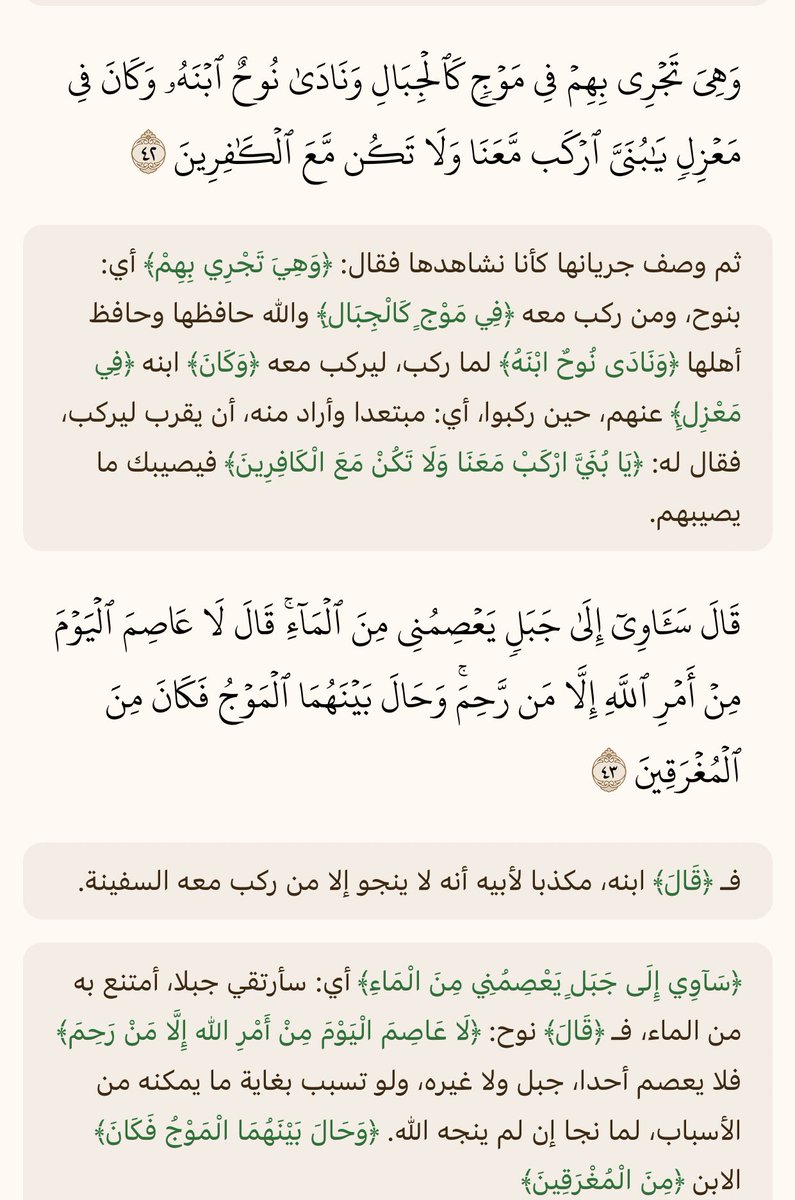 وَهِيَ تَجۡرِي بِهِمۡ فِي مَوۡجٖ كَٱلۡجِبَالِ وَنَادَىٰ نُوحٌ ٱبۡنَهُۥ وَكَانَ فِي
مَعۡزِلٖ يَٰبُنَيَّ ٱرۡكَب مَّعَنَا وَلَا تَكُن مَّعَ ٱلۡكَٰفِرِينَ ٤٢
ثم وصف جريانها كأنا نشاهدها فقال: ﴿وَهِيَ تَجْرِي بِهِمْ﴾ أي:
بنوح، ومن ركب معه ﴿فِي مَوْجٍ كَالْجِبَالِ﴾ والله حافظها وحافظ
أهلها ﴿وَنَادَى نُوحٌ ابْنَهُ﴾ لما ركب، ليركب معه ﴿وَكَانَ﴾ ابنه ﴿فِي
مَعْزِلٍ﴾ عنهم، حين ركبوا، أي: مبتعدا وأراد منه، أن يقرب ليركب،
فقال له: ﴿يَا بُنَيَّ ارْكَبْ مَعَنَا وَلَا تَكُنْ مَعَ الْكَافِرِينَ﴾ فيصيبك ما
يصيبهم.
قَالَ سَـَٔاوِيٓ إِلَىٰ جَبَلٖ يَعۡصِمُنِي مِنَ ٱلۡمَآءِۚ قَالَ لَا عَاصِمَ ٱلۡيَوۡمَ
مِنۡ أَمۡرِ ٱللَّهِ إِلَّا مَن رَّحِمَۚ وَحَالَ بَيۡنَهُمَا ٱلۡمَوۡجُ فَكَانَ مِنَ
ٱلۡمُغۡرَقِينَ ٤٣
فـ ﴿قَالَ﴾ ابنه، مكذبا لأبيه أنه لا ينجو إلا من ركب معه السفينة.
﴿سَآوِي إِلَى جَبَلٍ يَعْصِمُنِي مِنَ الْمَاءِ﴾ أي: سأرتقي جبلا، أمتنع به
من الماء، فـ ﴿قَالَ﴾ نوح: ﴿لَا عَاصِمَ الْيَوْمَ مِنْ أَمْرِ الله إِلَّا مَنْ رَحِمَ﴾
فلا يعصم أحدا، جبل ولا غيره، ولو تسبب بغاية ما يمكنه من
الأسباب، لما نجا إن لم ينجه الله. ﴿وَحَالَ بَيْنَهُمَا الْمَوْجُ فَكَانَ﴾
الابن ﴿مِنَ الْمُغْرَقِينَ﴾